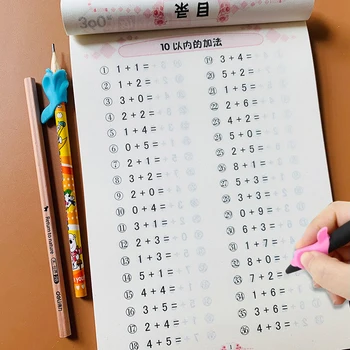 300
目录
10以内的加法
① 1+1=
② 1+2=
③ 3+0=
④ 2+2=
⑤ 1+4=
⑥ 0+5=
⑦ 2+1=
⑧ 3+2=
⑨ 2+0=
⑩ 0+4=
⑪ 3+1=
⑫ 2+3=
⑬ 0+1=
⑭ 5+1=
⑮ 4+4=
⑯ 3+5=
⑰ 2+4=
⑱ 4+5=
⑲ 3+4=
⑳ 5+2=
㉑ 1+5=
㉒ 2+6=
㉓ 4+2=
㉔ 5+0=
㉕ 2+5=
㉖ 8+1=
㉗ 5+3=
㉘ 3+6=
㉙ 0+9=
㉚ 6+3=
㉛ 1+7=
㉜ 8+0=
㉝ 7+2=
㉞ 1+6=
㉟ 3+6=
㊱ 4+3=